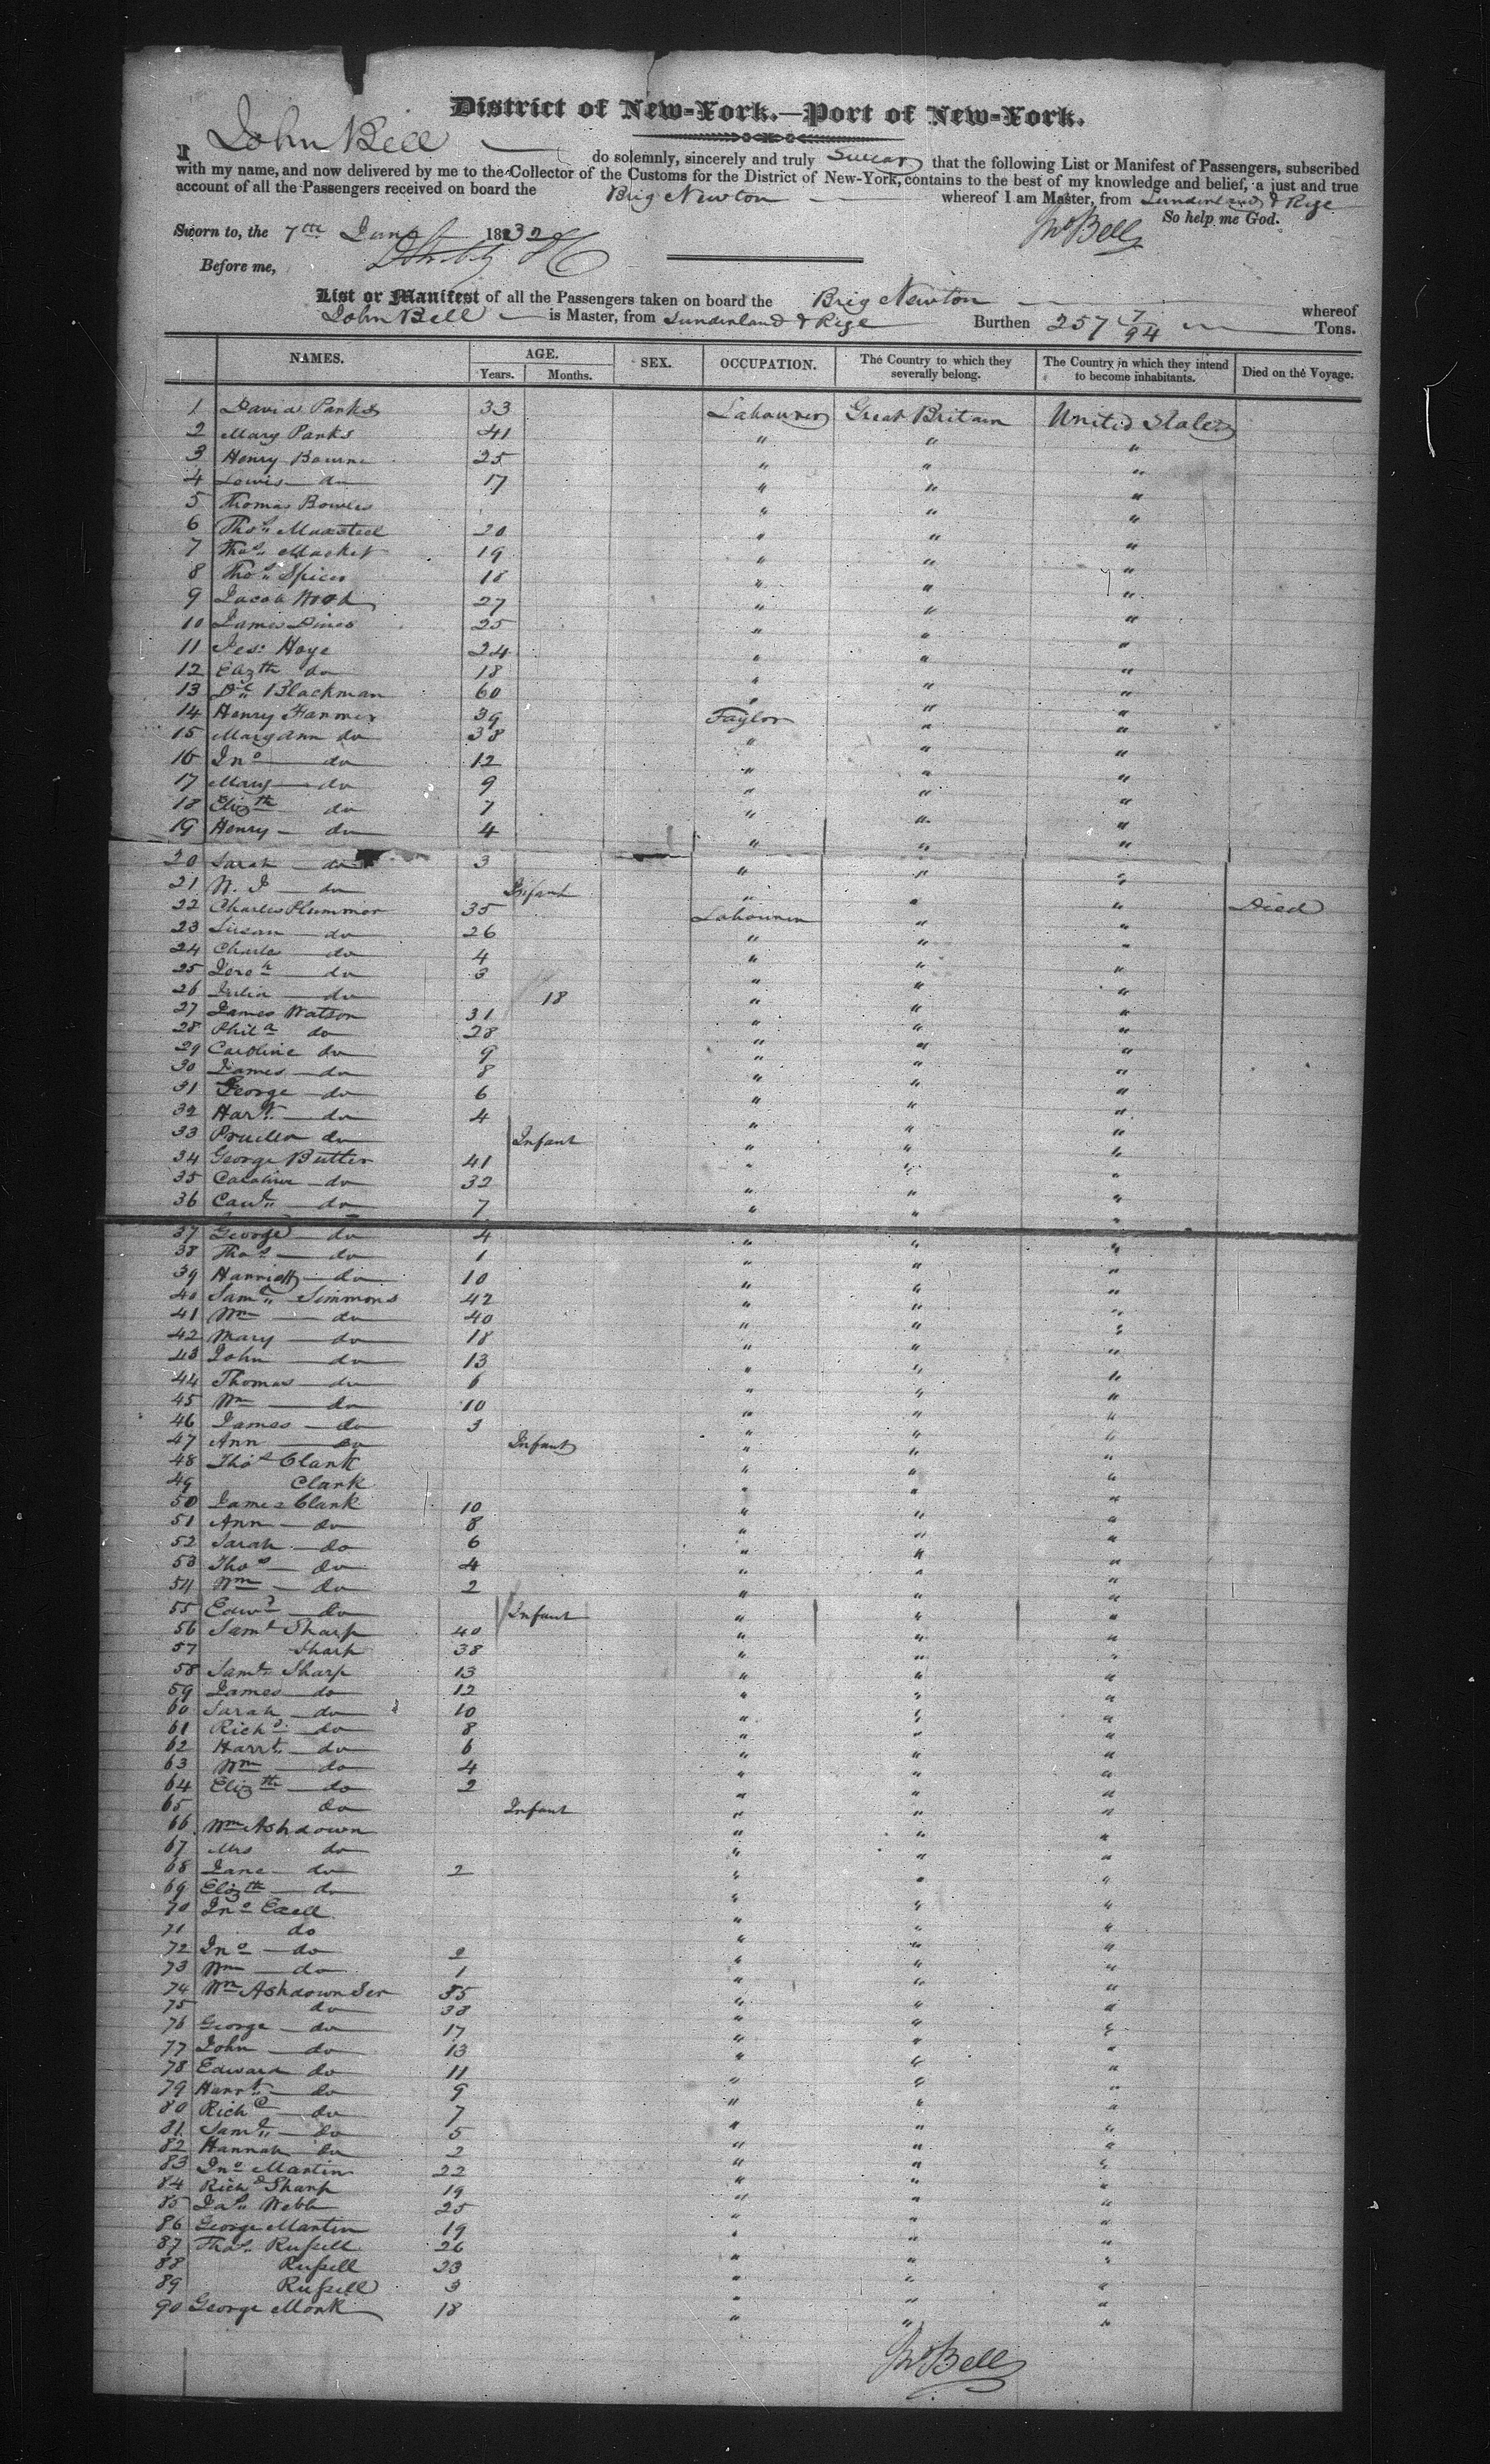 District of New-York.—Port of New-York.
I John Bell do solemnly, sincerely and truly Swear that the following List or Manifest of Passengers, subscribed
with my name, and now delivered by me to the Collector of the Customs for the District of New-York, contains to the best of my knowledge and belief, a just and true
account of all the Passengers received on board the Brig Newton whereof I am Master, from Sunderland & Rye
So help me God.
Sworn to, the 7th June 1832 Jno Bell
Before me,
List or Manifest of all the Passengers taken on board the Brig Newton whereof
John Bell is Master, from Sunderland & Rye Burthen 257 7/94 Tons.
NAMES. AGE. Years. Months. SEX. OCCUPATION. The Country to which they severally belong. The Country in which they intend to become inhabitants. Died on the Voyage.
1 David Parks 33 Labourer Great Britain United States
2 Mary Parks 41 " " "
3 Henry Bourne 25 " " "
4 Lewis do 17 " " "
5 Thomas Bowles " " "
6 Thos 20 " " "
7 Thos Macket 19 " " "
8 Thos Spicer 18 " " "
9 Jacob Wood 27 " " "
10 James Dines 25 " " "
11 Jes: Hoye 24 " " "
12 Elizth do 18 " " "
13 Blackman 60 " " "
14 Henry Farmer 39 Taylor " "
15 Mary Ann do 38 " " "
16 Jno do 12 " " "
17 Mary do 9 " " "
18 Elizth do 7 " " "
19 Henry do 4 " " "
20 Sarah do 3 " " "
21 W. J do Infant " " " Died
22 Charles Plummer 35 Labourer " "
23 Susan do 26 " " "
24 Charles do 4 " " "
25 do 3 " " "
26 Julia do 18 " " "
27 James Watson 31 " " "
28 Phila do 28 " " "
29 Caroline do 9 " " "
30 James do 8 " " "
31 George do 6 " " "
32 Hart do 4 " " "
33 do Infant " " "
34 George Butter 41 " " "
35 Caroline do 32 " " "
36 do 7 " " "
37 George do 4 " " "
38 Thos do 1 " " "
39 Harriott do 10 " " "
40 Saml Simmons 42 " " "
41 Wm do 40 " " "
42 Mary do 18 " " "
43 John do 13 " " "
44 Thomas do 6 " " "
45 Wm do 10 " " "
46 James do 3 " " "
47 Ann do Infant " " "
48 Thos Clark " " "
49 Clark " " "
50 James Clark 10 " " "
51 Ann do 8 " " "
52 Sarah do 6 " " "
53 Thos do 4 " " "
54 Wm do 2 " " "
55 Edwd do Infant " " "
56 Saml Sharp 40 " " "
57 Sharp 38 " " "
58 Saml Sharp 13 " " "
59 James do 12 " " "
60 Sarah do 10 " " "
61 Richd do 8 " " "
62 Harrt do 6 " " "
63 Wm do 4 " " "
64 Elizth do 2 " " "
65 do Infant " " "
66 Wm Ashdown " " "
67 Mrs do " " "
68 Jane do 2 " " "
69 Elizth do " " "
70 Jno Eaell " " "
71 do " " "
72 Jno do 2 " " "
73 Wm do 1 " " "
74 Wm Ashdown Ser 35 " " "
75 do 33 " " "
76 George do 17 " " "
77 John do 13 " " "
78 Edward do 11 " " "
79 Harrt do 9 " " "
80 Richd do 7 " " "
81 Saml do 5 " " "
82 Hannah do 2 " " "
83 Jno Martin 22 " " "
84 Richd Sharp 19 " " "
85 Jas Webb 25 " " "
86 George Martin 19 " " "
87 Thos Russell 26 " " "
88 Russell 23 " " "
89 Russell 3 " " "
90 George Monk 18 " " "
Jno Bell